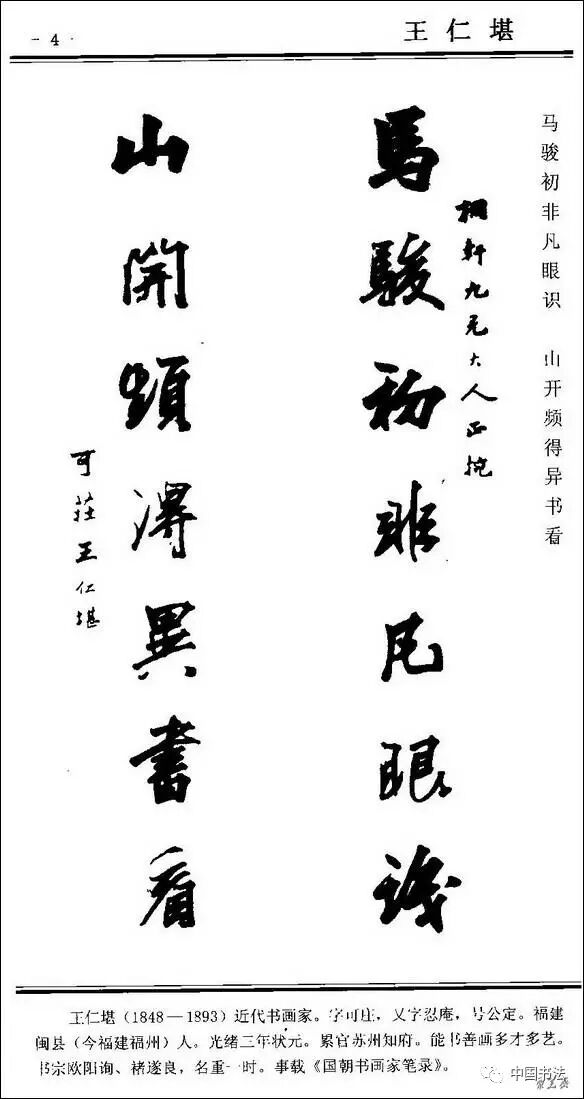 - 4 ·
王仁堪
马骏初非凡眼识 山开频得异书看
馬駿初非凡眼識
軒九兄大人正捥
山開頻得異書看
可莊王仁堪
王仁堪(1848—1893)近代书画家。字可庄,又字忍庵,号公定。福建
闽县(今福建福州)人。光绪三年状元。累官苏州知府。能书善画多才多艺。
书宗欧阳询、褚遂良,名重一时。事载《国朝书画家笔录》。
中国书法